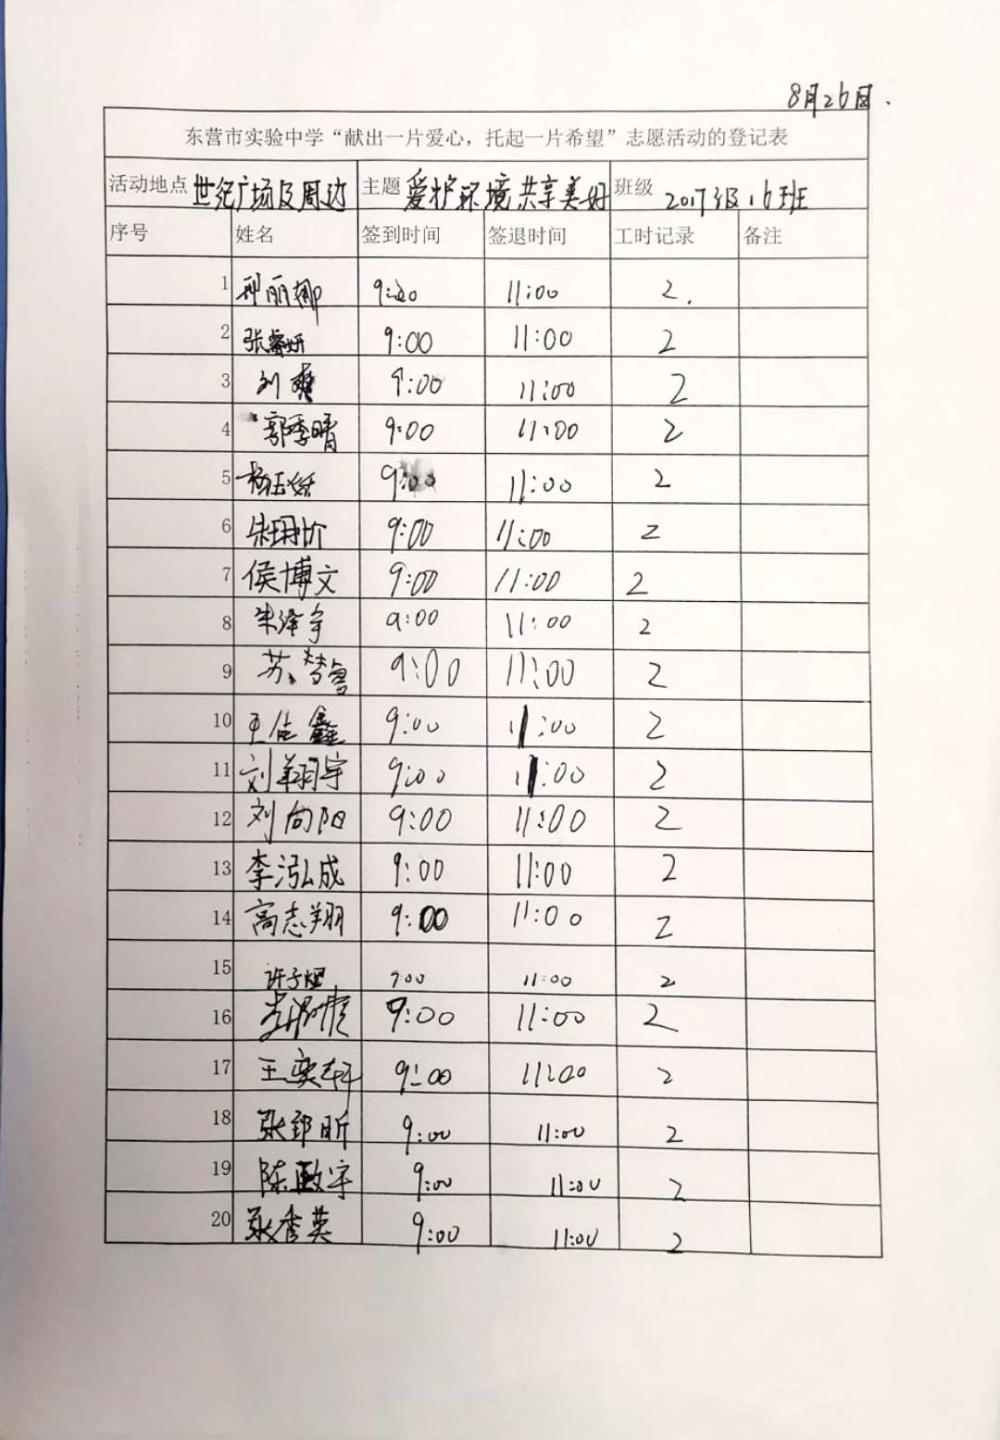 8月26日.
东营市实验中学“献出一片爱心，托起一片希望”志愿活动的登记表
活动地点 世纪广场及周边 主题 爱护环境共享美好 班级 2017级16班
序号 姓名 签到时间 签退时间 工时记录 备注
1 邢丽娜 9:00 11:00 2.
2 张睿妍 9:00 11:00 2
3 刘爽 9:00 11:00 2
4 郭季晴 9:00 11:00 2
5 杨玉 9:00 11:00 2
6 朱玥 9:00 11:00 2
7 侯博文 9:00 11:00 2
8 朱泽宇 9:00 11:00 2
9 苏梦鲁 9:00 11:00 2
10 王佳鑫 9:00 11:00 2
11 刘翔宇 9:00 11:00 2
12 刘向阳 9:00 11:00 2
13 李泓成 9:00 11:00 2
14 高志翔 9:00 11:00 2
15 许子煜 9:00 11:00 2
16 9:00 11:00 2
17 王奕轩 9:00 11:00 2
18 张郅昕 9:00 11:00 2
19 陈政宇 9:00 11:00 2
20 耿秀英 9:00 11:00 2